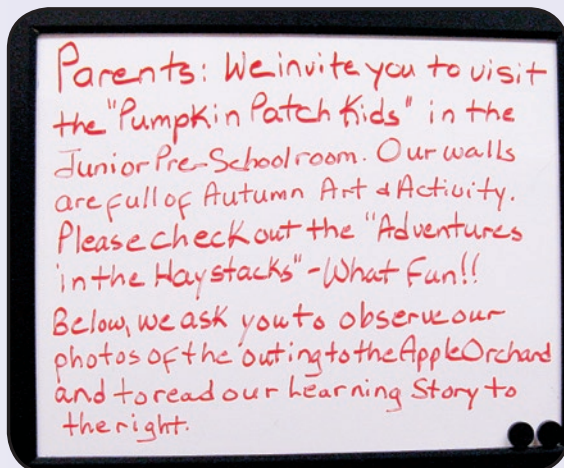 Parents: We invite you to visit
the "Pumpkin Patch Kids" in the
Junior Pre-School room. Our walls
are full of Autumn Art & Activity.
Please check out the "Adventures
in the Haystacks" - What Fun!!
Below, we ask you to observe our
photos of the outing to the Apple Orchard
and to read our Learning Story to
the right.